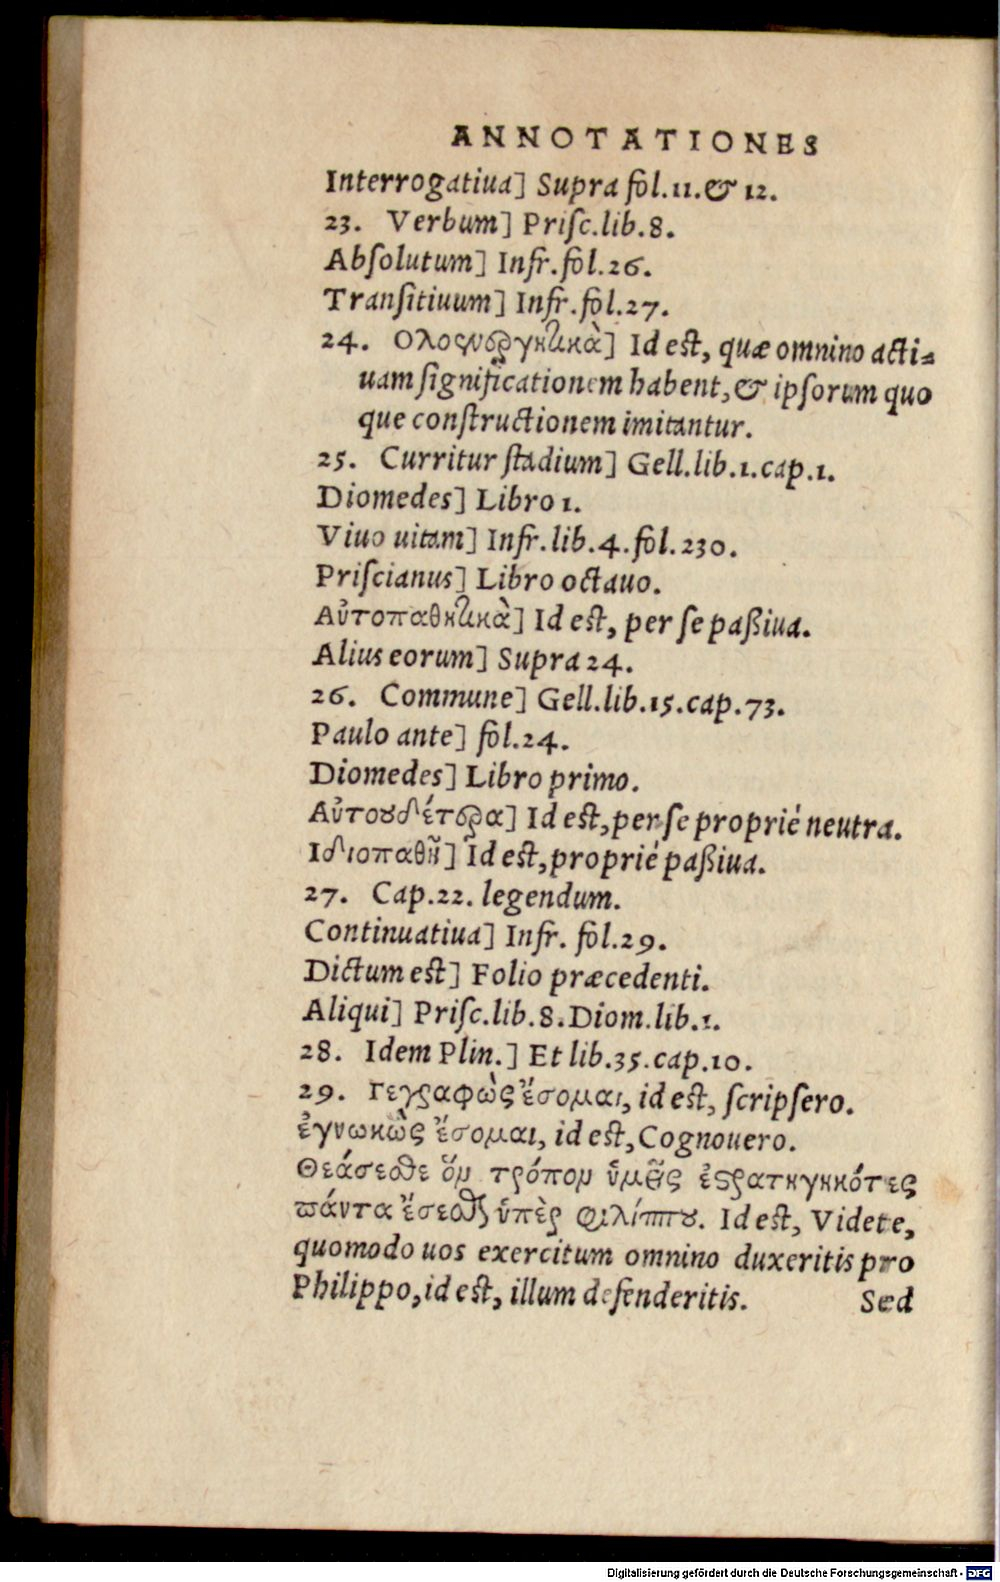 ANNOTATIONES
Interrogatiua] Supra fol.11.& 12.
23. Verbum] Priſc.lib.8.
Abſolutum] Infr.fol.26.
Tranſitiuum] Infr.fol.27.
24. Id eſt, quæ omnino acti=
uam ſignificationem habent, & ipſorum quo
que conſtructionem imitantur.
25. Curritur ſtadium] Gell.lib.1.cap.1.
Diomedes] Libro 1.
Viuo uitam] Infr.lib.4.fol.230.
Priſcianus] Libro octauo.
Αὐτοπαθητικὰ] Id eſt, per ſe paßiua.
Alius eorum] Supra 24.
26. Commune] Gell.lib.15.cap.73.
Paulo ante] fol.24.
Diomedes] Libro primo.
Αὐτουδέτερα] Id eſt, per ſe propriè neutra.
Ιδιοπαθῆ] Id eſt, propriè paßiua.
27. Cap.22. legendum.
Continuatiua] Infr. fol.29.
Dictum eſt] Folio præcedenti.
Aliqui] Priſc.lib.8.Diom.lib.1.
28. Idem Plin.] Et lib.35.cap.10.
29. Γεγραφὼς ἔσομαι, id eſt, ſcripſero.
ἐγνωκὼς ἔσομαι, id eſt, Cognouero.
Θεάσεσθε ὃν τρόπον ὑμεῖς ἐστρατηγηκότες
πάντα ἔσεσθε ὑπὲρ φιλίππου. Id eſt, Videte,
quomodo uos exercitum omnino duxeritis pro
Philippo, id eſt, illum defenderitis. Sed
Digitalisierung gefördert durch die Deutsche Forschungsgemeinschaft - DFG